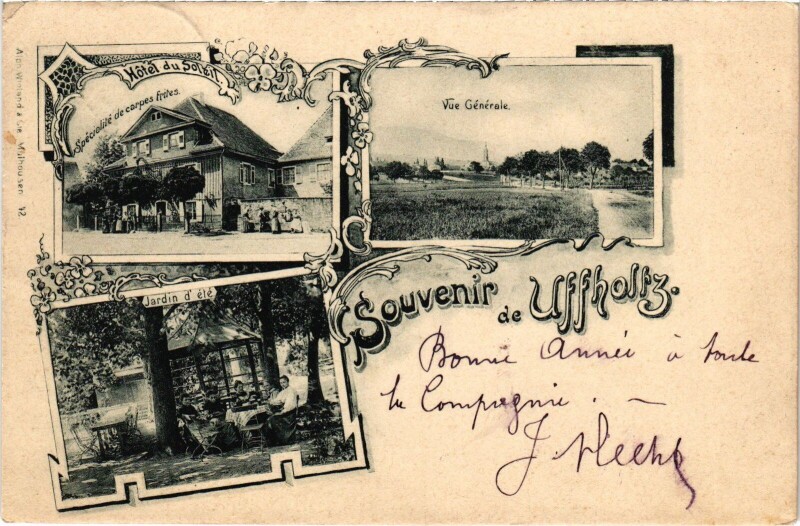 Hôtel du Soleil
Spécialité de carpes frites.
Vue Générale.
Jardin d'été
Souvenir
de Uffholtz.
Bonne Année à toute
la Compagnie. —
J.
Mülhausen 12.